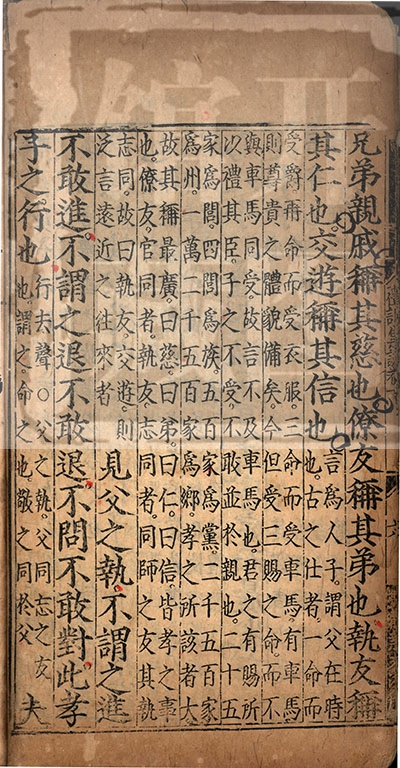 兄弟親戚稱其慈也僚友稱其弟也執友稱
其仁也交遊稱其信也
言爲人子謂父在時
也古之仕者一命而
受爵再命而受衣服三命而受車馬有車馬
則尊貴之體貌備矣今但受三賜之命而不
與車馬同受故言不及車馬也君之有賜所
以禮其臣子之不受不敢並於親也二十五
家爲閭四閭爲族五百家爲黨二千五百家
爲州一萬二千五百家爲鄉孝之所該者大
故其稱最廣曰慈曰弟曰仁曰信皆孝之事
也僚友官同者執友志同者同師之友其執
志同故曰執友交遊則
泛言遠近之往來者
見父之執不謂之進
不敢進不謂之退不敢退不問不敢對此孝
子之行也
行去聲○父之執父同志之友
也謂之命之也敬之同於父
夫